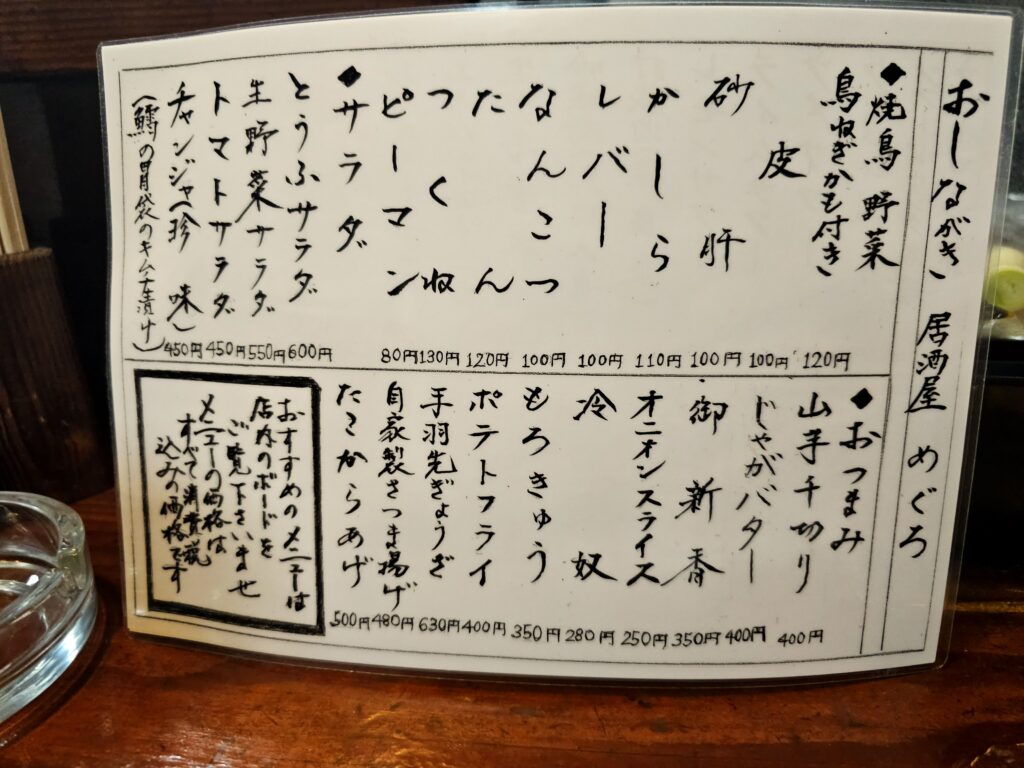 おしながき 居酒屋 めぐろ
◆焼鳥 野菜
鳥ねぎかも付き 120円
皮 100円
砂肝 100円
かしら 110円
レバー 100円
なんこつ 100円
たん 120円
つくね 130円
ピーマン 80円
◆サラダ
とうふサラダ 600円
生野菜サラダ 550円
トマトサラダ 450円
チャンジャ(珍味) 450円
(鱈の胃袋のキムチ漬け)
◆おつまみ
山芋千切り 400円
じゃがバター 400円
御新香 350円
オニオンスライス 250円
冷奴 280円
もろきゅう 350円
ポテトフライ 400円
手羽先ぎょうざ 630円
自家製さつま揚げ 480円
たこからあげ 500円
おすすめのメニューは
店内のボードを
ご覧下さいませ
メニューの価格は
すべて消費税
込みの価格です